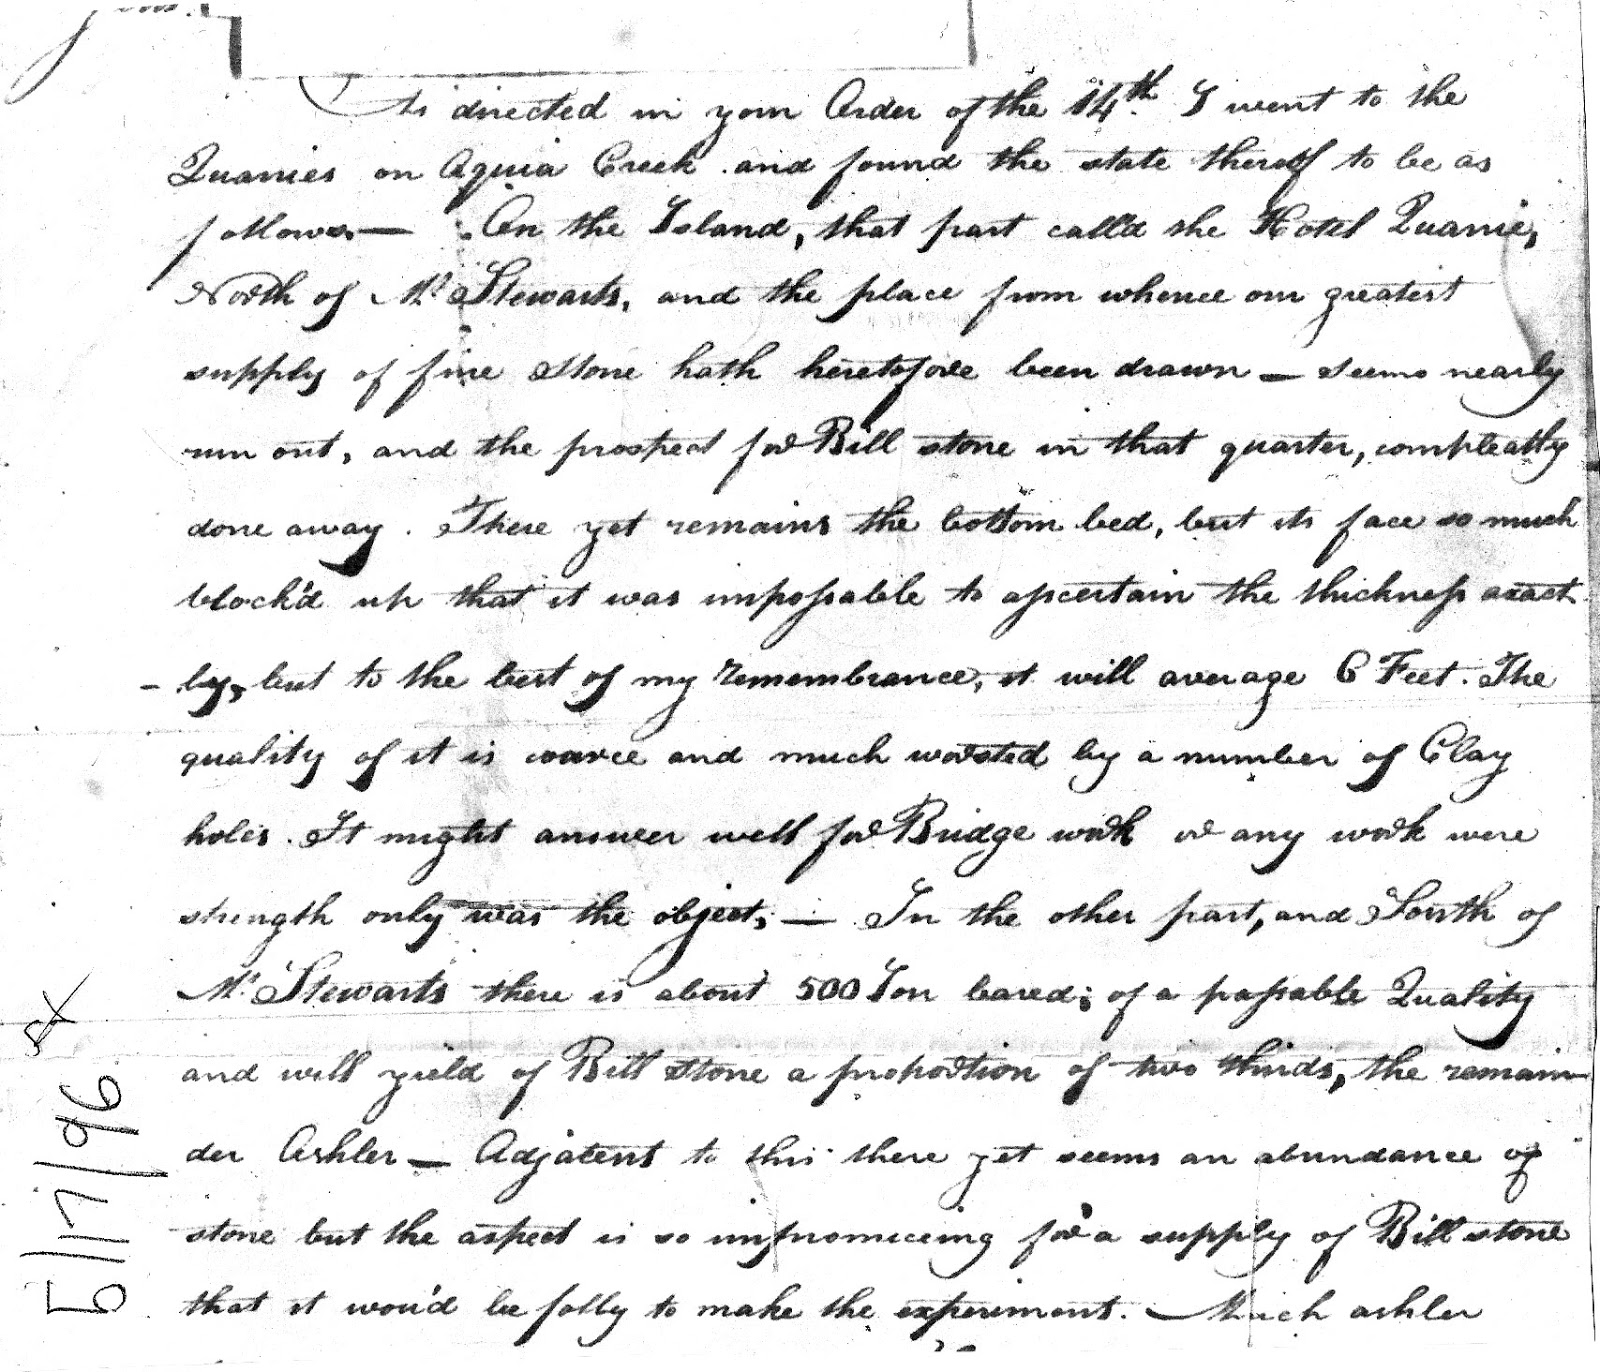 As directed in your Order of the 14th. I went to the
Quarries on Aquia Creek and found the state thereof to be as
follows — On the Island, that part call'd the Hotel Quarrie,
North of Mr. Stewarts, and the place from whence our greatest
supply of fine Stone hath heretofore been drawn — seems nearly
run out, and the prospect for Bill stone in that quarter, compleatly
done away. There yet remains the bottom bed, but its face so much
block'd up that it was impossable to ascertain the thickness exact
- ly, but to the best of my remembrance, it will average 6 Feet. The
quality of it is coarce and much worsted by a number of Clay
holes. It might answer well for Bridge work or any work were
strength only was the object; — In the other part, and South of
Mr. Stewarts there is about 500 Ton bared; of a passable Quality
and will yield of Bill stone a proportion of two thirds, the remain
der Ashler — Adjatent to this there yet seems an abundance of
stone but the aspect is so unpromiceing for a supply of Bill stone
that it wou'd be folly to make the experiment. Much ashler
5/17/96